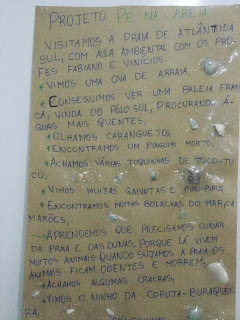 PROJETO PÉ NA AREIA
VISITAMOS A PRAIA DE ATLÂNTIDA
SUL, COM AULA AMBIENTAL COM OS PRO
FES FABIANO E VINÍCIUS.
VIMOS UMA OVA DE ARRAIA,
CONSEGUIMOS VER UMA BALEIA FRAN
CA, VINDA DO PÓLO SUL, PROCURANDO Á-
GUAS MAIS QUENTES,
OLHAMOS CARANGUEJOS
ENCONTRAMOS UM PINGUIM MORTO,
ACHAMOS VÁRIAS TOQUINHAS DE TUCO-TU
CO,
VIMOS MUITAS GAIVOTAS E PIRU-PIRUS
ENCONTRAMOS MUITAS BOLACHAS DO MAR E CA
MARÕES,
APRENDEMOS QUE PRECISAMOS CUIDAR
DA PRAIA E DAS DUNAS, PORQUE LÁ VIVEM
MUITOS ANIMAIS QUANDO SUJAMOS A PRAIA OS
ANIMAIS FICAM DOENTES E MORREM,
ACHAMOS ALGUMAS CRACAS,
VIMOS O NINHO DA CORUJA-BURAQUEI-
RA,